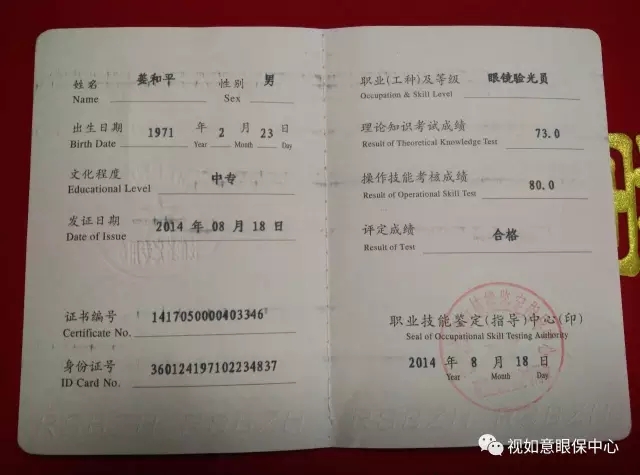 姓名 姜和平 性别 男
Name Sex
出生日期 1971 年 2 月 23 日
Birth Date Year Month Day
文化程度 中专
Educational Level
发证日期 2014 年 08 月 18 日
Date of Issue
证书编号 1417050000403346
Certificate No.
身份证号 360124197102234837
ID Card No.
职业(工种)及等级 眼镜验光员
Occupation & Skill Level
理论知识考试成绩 73.0
Result of Theoretical Knowledge Test
操作技能考核成绩 80.0
Result of Operational Skill Test
评定成绩 合格
Result of Test
职业技能鉴定(指导)中心(印)
Seal of Occupational Skill Testing Authority
2014 年 8 月 18 日
Year Month Day
视如意眼保中心